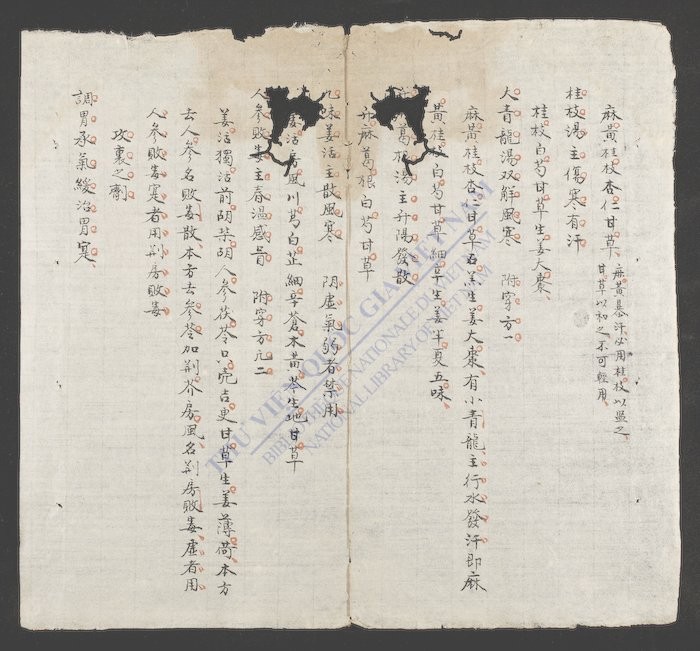 麻黄桂枝杏仁甘草
麻黄恭汗必用桂枝以監之
甘草以和之不可輕用
桂枝湯主傷寒有汗
桂枝白芍甘草生姜大棗
大青龍湯双解風寒 附穿方一
麻黄桂枝杏仁甘草石羔生姜大棗有小青龍主行水發汗即麻
黄桂枝白芍甘草細辛生姜半夏五味
葛根湯主升陽發散
升麻葛根白芍甘草
九味羌活主散風寒 陰虚氣弱者禁用
羌活房風川芎白芷細辛蒼木黄芩生地甘草
人參敗毒主春温感冒 附穿方凡二
羌活獨活前胡柴胡人參茯苓只壳吉更甘草生姜薄荷本方
去人參名敗毒散本方去參苓加荆芥房風名荆房敗毒虚者用
人參敗毒寔者用荆房敗毒
攻裏之劑
調胃承氣緩治胃寔
THƯ VIỆN QUỐC GIA VIỆT NAM
BIBLIOTHÈQUE NATIONALE DU VIETNAM
NATIONAL LIBRARY OF VIETNAM